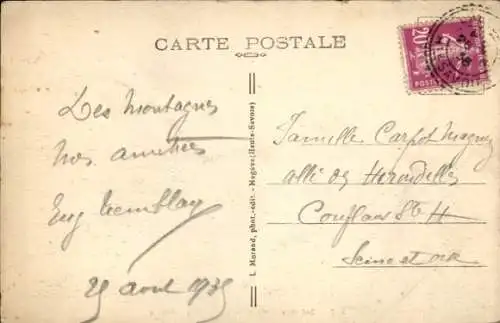 CARTE POSTALE
20c
POSTES
Les Montagnes
Nos amitiés
Eug Tremblay
29 août 1935
L. Morand, phot.-édit. - Megève (Haute-Savoie)
Famille Carpot Magny
allée des Hirondelles
Conflans Ste H
Seine et Oise